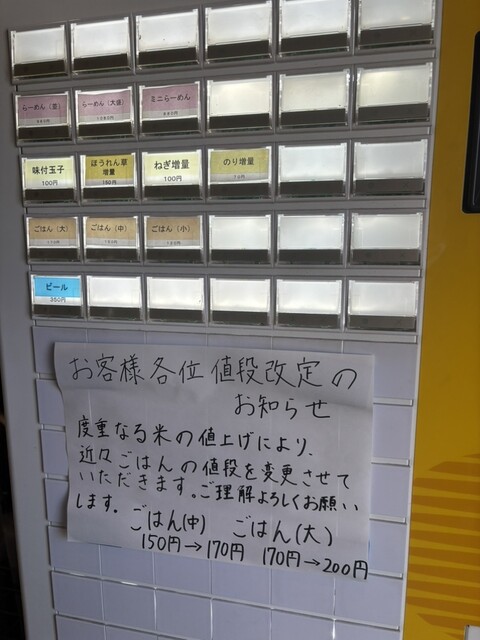 らーめん（並）
らーめん（大盛）
ミニらーめん
味付玉子
100円
ほうれん草
増量
150円
ねぎ増量
100円
のり増量
ごはん（大）
170円
ごはん（中）
150円
ごはん（小）
ビール
350円
お客様各位 値段改定の
お知らせ
度重なる米の値上げにより、
近々ごはんの値段を変更させて
いただきます。ご理解よろしくお願い
します。
ごはん(中) ごはん(大)
150円→170円 170円→200円